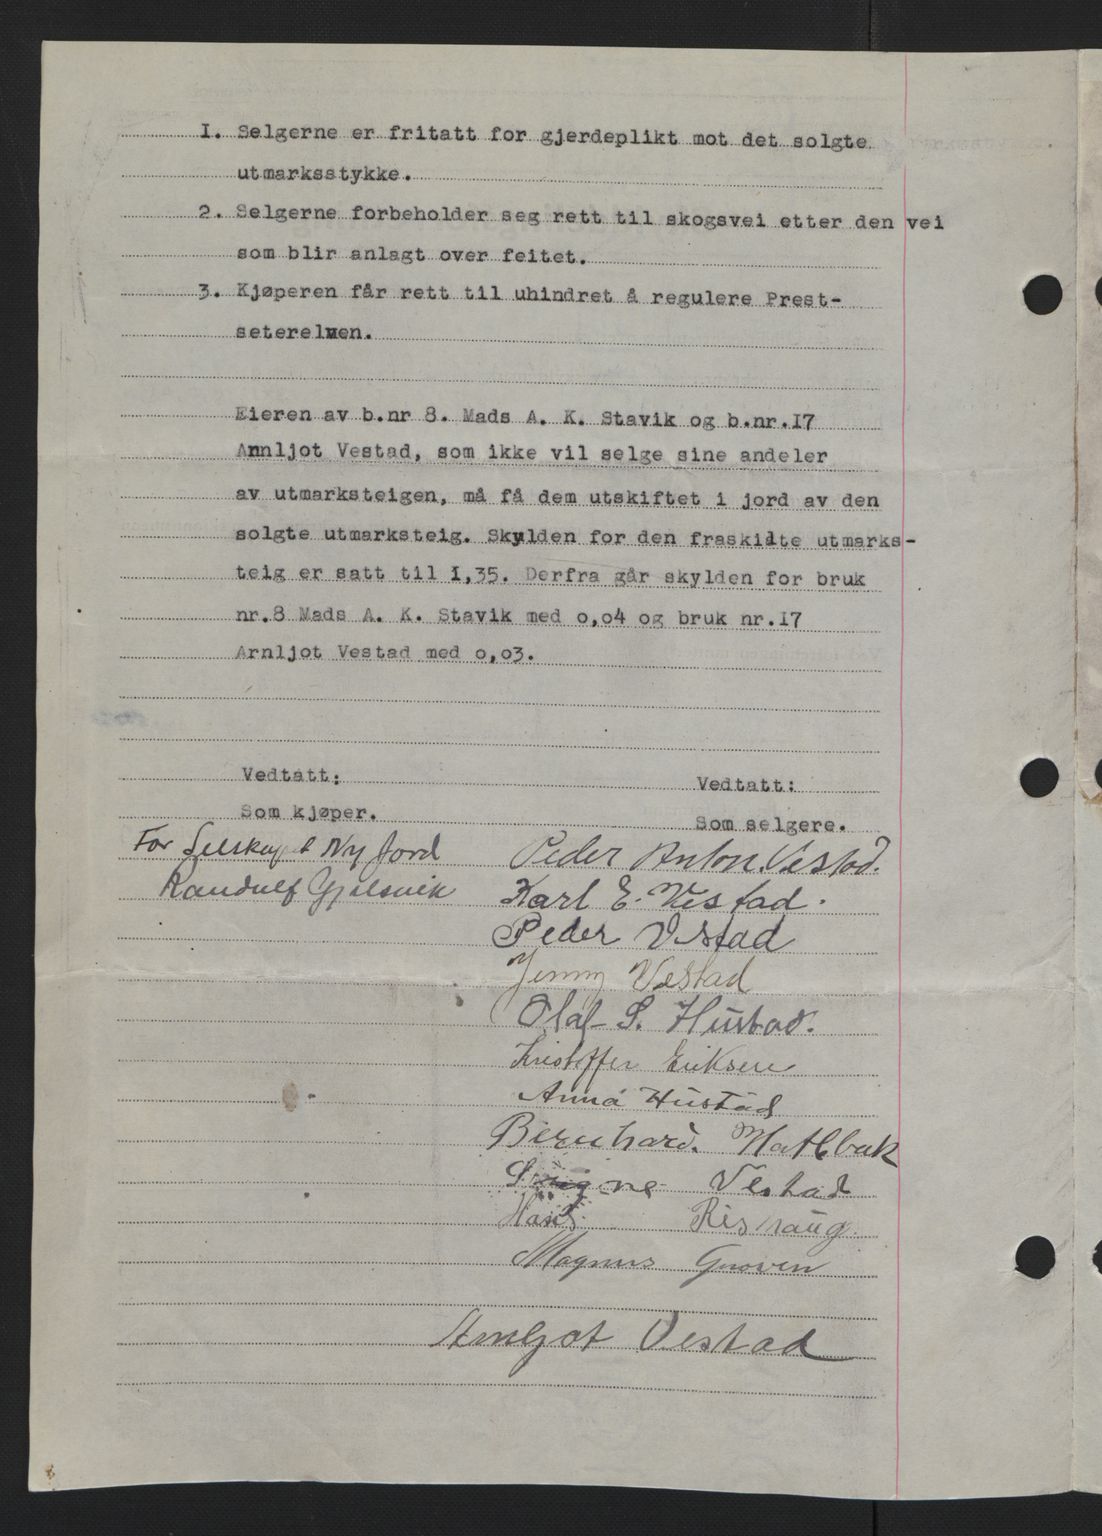 1. Selgerne er fritatt for gjerdeplikt mot det solgte
utmarksstykke.
2. Selgerne forbeholder seg rett til skogsvei etter den vei
som blir anlagt over feitet.
3. Kjøperen får rett til uhindret å regulere Prest-
seterelven.
Eieren av b.nr 8. Mads A. K. Stavik og b.nr.17
Arnljot Vestad, som ikke vil selge sine andeler
av utmarksteigen, må få dem utskiftet i jord av den
solgte utmarksteig. Skylden for den fraskilte utmarks-
teig er satt til 1,35. Derfra går skylden for bruk
nr.8 Mads A. K. Stavik med 0,04 og bruk nr.17
Arnljot Vestad med 0,03.
Vedtatt:
Som kjøper.
For Selskapet Ny Jord
Randulf Gjelsvik
Vedtatt:
Som selgere.
Peder Anton Vestad.
Karl E. Vestad.
Peder Vestad
Jenny Vestad
Olaf S. Hustad.
Kristoffer Eriksen
Anna Hustad
Bernhard. Hatlbak
Vestad
Hans Rishaug
Magnus Gnoven
Arnljot Vestad